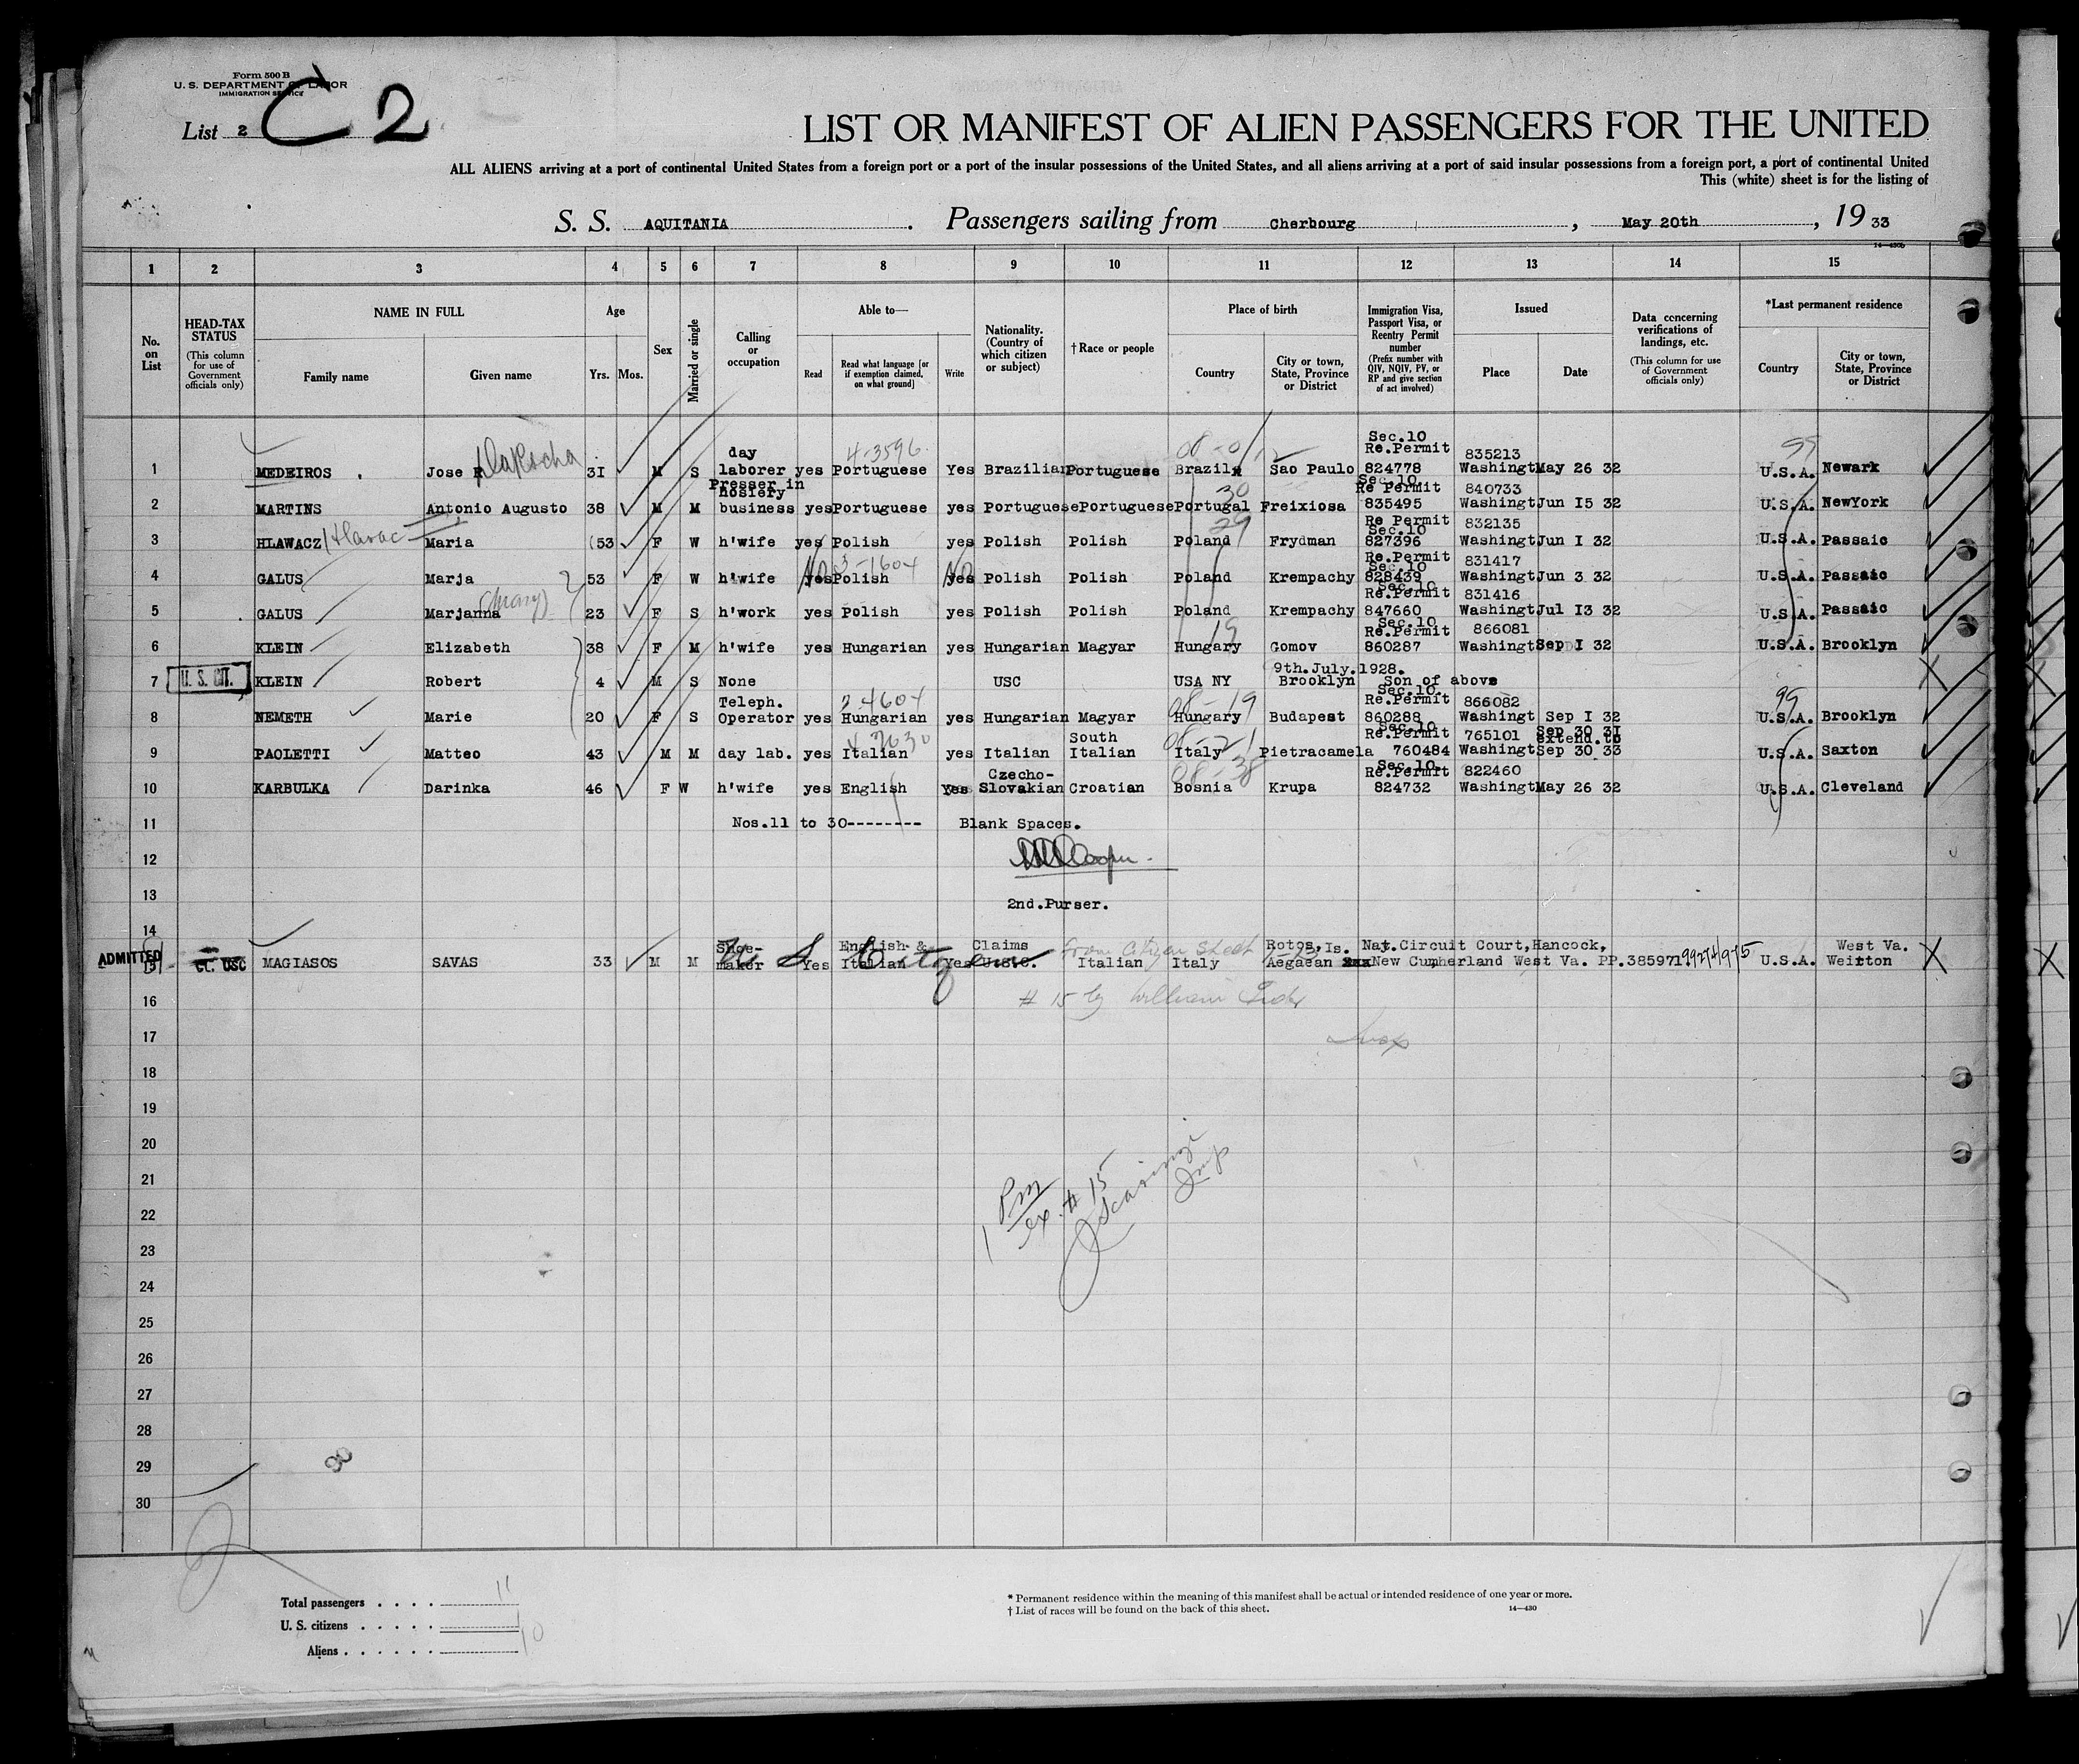 Form 500 B
U. S. DEPARTMENT OF LABOR
IMMIGRATION SERVICE
List 2
C 2
LIST OR MANIFEST OF ALIEN PASSENGERS FOR THE UNITED
ALL ALIENS arriving at a port of continental United States from a foreign port or a port of the insular possessions of the United States, and all aliens arriving at a port of said insular possessions from a foreign port, a port of continental United
This (white) sheet is for the listing of
S. S. AQUITANIA. Passengers sailing from Cherbourg, May 20th, 1933
14—430b
1 2 3 4 5 6 7 8 9 10 11 12 13 14 15
No. on List
HEAD-TAX STATUS (This column for use of Government officials only)
NAME IN FULL
Family name Given name
Age
Yrs. Mos.
Sex
Married or single
Calling or occupation
Able to—
Read Read what language [or if exemption claimed, on what ground] Write
Nationality. (Country of which citizen or subject)
† Race or people
Place of birth
Country City or town, State, Province or District
Immigration Visa, Passport Visa, or Reentry Permit number (Prefix number with QIV, NQIV, PV, or RP and give section of act involved)
Issued
Place Date
Data concerning verifications of landings, etc. (This column for use of Government officials only)
*Last permanent residence
Country City or town, State, Province or District
1 MEDEIROS Jose DaRocha 31 M S day laborer yes Portuguese 4-3596 Yes Brazilian Portuguese Brazil Sao Paulo Sec.10 Re.Permit 824778 835213 Washingt May 26 32 U.S.A. Newark
2 MARTINS Antonio Augusto 38 M M Presser in hosiery business yes Portuguese yes Portuguese Portuguese Portugal 30 Freixiosa Sec.10 Re Permit 835495 840733 Washingt Jun I5 32 U.S.A. NewYork
3 HLAWACZ / Hlavac Maria 53 F W h'wife yes Polish yes Polish Polish Poland 29 Frydman Re Permit Sec.10 827396 832135 Washingt Jun I 32 U.S.A. Passaic
4 GALUS Marja 53 F W h'wife yes No Polish 3-1604 yes No Polish Polish Poland Krempachy Re.Permit Sec.10 828439 831417 Washingt Jun 3 32 U.S.A. Passaic
5 GALUS Marjanna (Mary) 23 F S h'work yes Polish yes Polish Polish Poland Krempachy Sec.10 Re.Permit 847660 831416 Washingt Jul I3 32 U.S.A. Passaic
6 KLEIN Elizabeth 38 F M h'wife yes Hungarian yes Hungarian Magyar Hungary 19 Gomov Sec.10 Re.Permit 860287 866081 Washingt Sep I 32 U.S.A. Brooklyn
7 U. S. CIT. KLEIN Robert 4 M S None USC USA NY 9th.July.1928. Brooklyn Son of above
8 NEMETH Marie 20 F S Teleph. Operator yes Hungarian 3-4604 yes Hungarian Magyar Hungary 08-19 Budapest Sec.10. Re.Permit 860288 866082 Washingt Sep I 32 99 U.S.A. Brooklyn
9 PAOLETTI Matteo 43 M M day lab. yes Italian yes Italian South Italian Italy 08-21 Pietracamela Sec.10. Re.Permit 760484 765101 Washingt Sep 30 31 extend.to Sep 30 33 U.S.A. Saxton
10 KARBULKA Darinka 46 F W h'wife yes English Yes Czecho-Slovakian Croatian Bosnia 08-38 Krupa Sec.10. Re.Permit 824732 822460 Washingt May 26 32 U.S.A. Cleveland
11 Nos.11 to 30-------- Blank Spaces.
12 Cooper
13 2nd.Purser.
14
ADMITTED 15 Cl. USC MAGIASOS SAVAS 33 M M Shoe-maker Yes English & Italian Yes Claims U.S.C. Italian Italy Rotos, Is. Aegaean Nat.Circuit Court,Hancock, New Cumberland West Va. PP.385971 U.S.A. West Va. Weirton
U S Citizen
from Citizen Sheet
16 # 15 by William
17 Insp
18
19
20
21
22
23
24
25
26
27
28
29
30
1 Pm
ex. # 15
Insp
Total passengers . . . . 11
U. S. citizens . . . . . 1
Aliens . . . . . . 10
* Permanent residence within the meaning of this manifest shall be actual or intended residence of one year or more.
† List of races will be found on the back of this sheet.
14—430